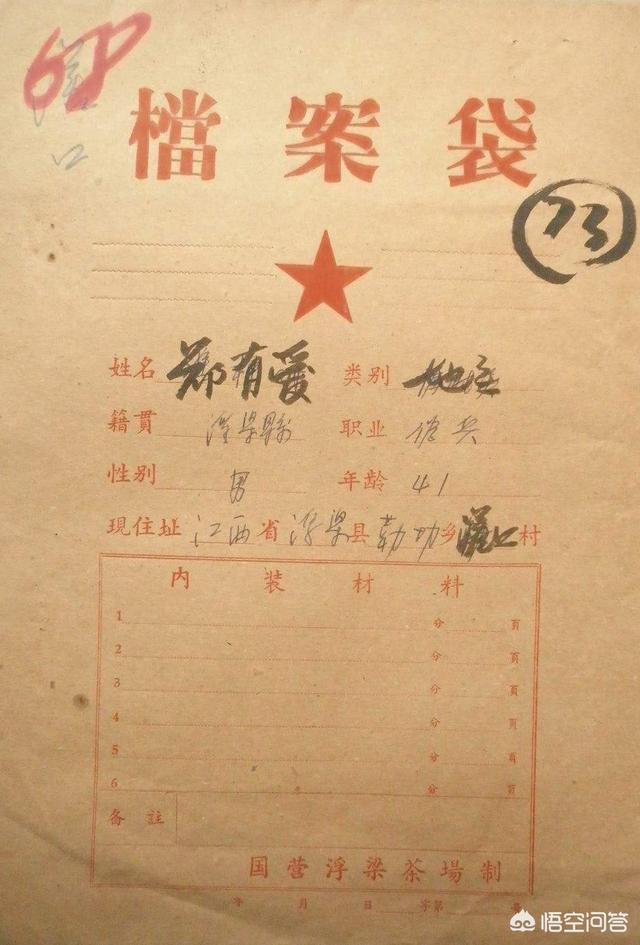 68
口
檔案袋
73
姓名 鄭有爱 类别
籍贯 浮梁縣 职业
性别 男 年龄 41
現住址 江西省浮梁县勒功乡口村
内装材料
1 分 頁
2 分 頁
3 分 頁
4 分 頁
5 分 頁
6 分 頁
备註
国营浮梁茶場制
年 月 日 字第 号
悟空问答